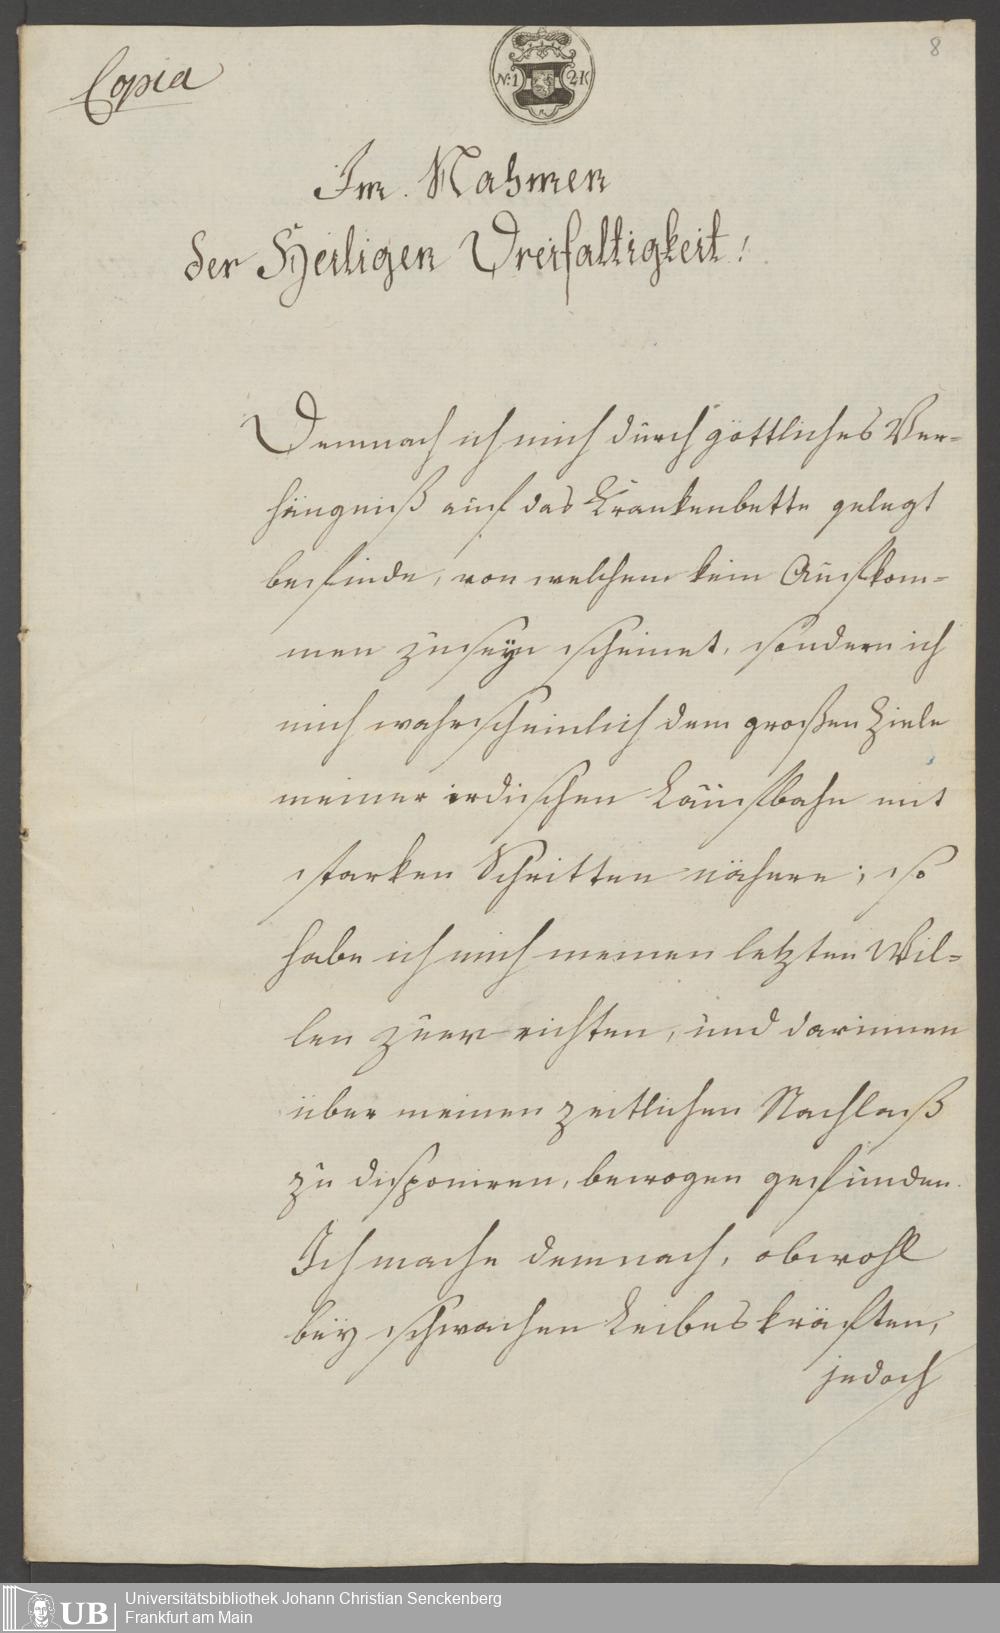 Copia
8
N: 1 2 K
Im Nahmen
der Heiligen Dreifaltigkeit!
Demnach ich mich durch göttliches Ver=
hängniß auf das Krankenbette gelegt
befinde, von welchem kein Aufkom=
men zu seyn scheinet, sondern ich
mich wahrscheinlich dem großen Ziele
meiner irdischen Laufbahn mit
starken Schritten nähere; so
habe ich mich meinen letzten Wil=
len zu errichten, und darinnen
über meinen zeitlichen Nachlaß
zu disponiren, bewogen gefunden.
Ich mache demnach, obwohl
bey schwachen Leibeskräften,
jedoch
UB
Universitätsbibliothek Johann Christian Senckenberg
Frankfurt am Main